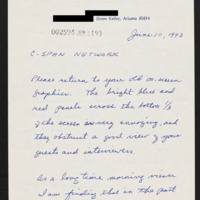 Green Valley, Arizona 85614
002593 JUN 1993
June 10, 1993
C-SPAN NETWORK
Please return to your old on-screen
graphics. The bright blue and
red panels across the bottom 1/3
of the screen are very annoying, and
they obstruct a good view of your
guests and interviewers.
As a long time morning viewer
I am finding that in the past